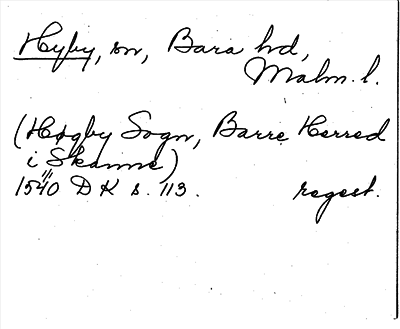 Hyby, sn, Bara hd,
Malm. l.
(Høgby Sogn, Barre Herred
i Skanne)
1540 DK s. 113. regest.